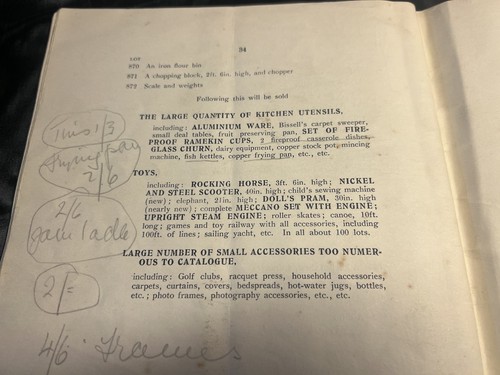 34
LOT
870 An iron flour bin
871 A chopping block, 2ft. 6in. high, and chopper
872 Scale and weights
Following this will be sold
THE LARGE QUANTITY OF KITCHEN UTENSILS,
including: ALUMINIUM WARE, Bissell's carpet sweeper,
small deal tables, fruit preserving pan, SET OF FIRE-
PROOF RAMEKIN CUPS, 2 fireproof casserole dishes,
GLASS CHURN, dairy equipment, copper stock pot, mincing
machine, fish kettles, copper frying pan, etc., etc.
TOYS,
including: ROCKING HORSE, 3ft. 6in. high; NICKEL
AND STEEL SCOOTER, 40in. high; child's sewing machine
(new); elephant, 21in. high; DOLL'S PRAM, 30in. high
(nearly new); complete MECCANO SET WITH ENGINE;
UPRIGHT STEAM ENGINE; roller skates; canoe, 10ft.
long; games and toy railway with all accessories, including
100ft. of lines; sailing yacht, etc. In all about 100 lots.
LARGE NUMBER OF SMALL ACCESSORIES TOO NUMER-
OUS TO CATALOGUE,
including: Golf clubs, racquet press, household accessories,
carpets, curtains, covers, bedspreads, hot-water jugs, bottles,
etc.; photo frames, photography accessories, etc., etc.
Tins 1/3
Frying pan
2/6
2/6
jam ladle
2/=
4/6 Frames